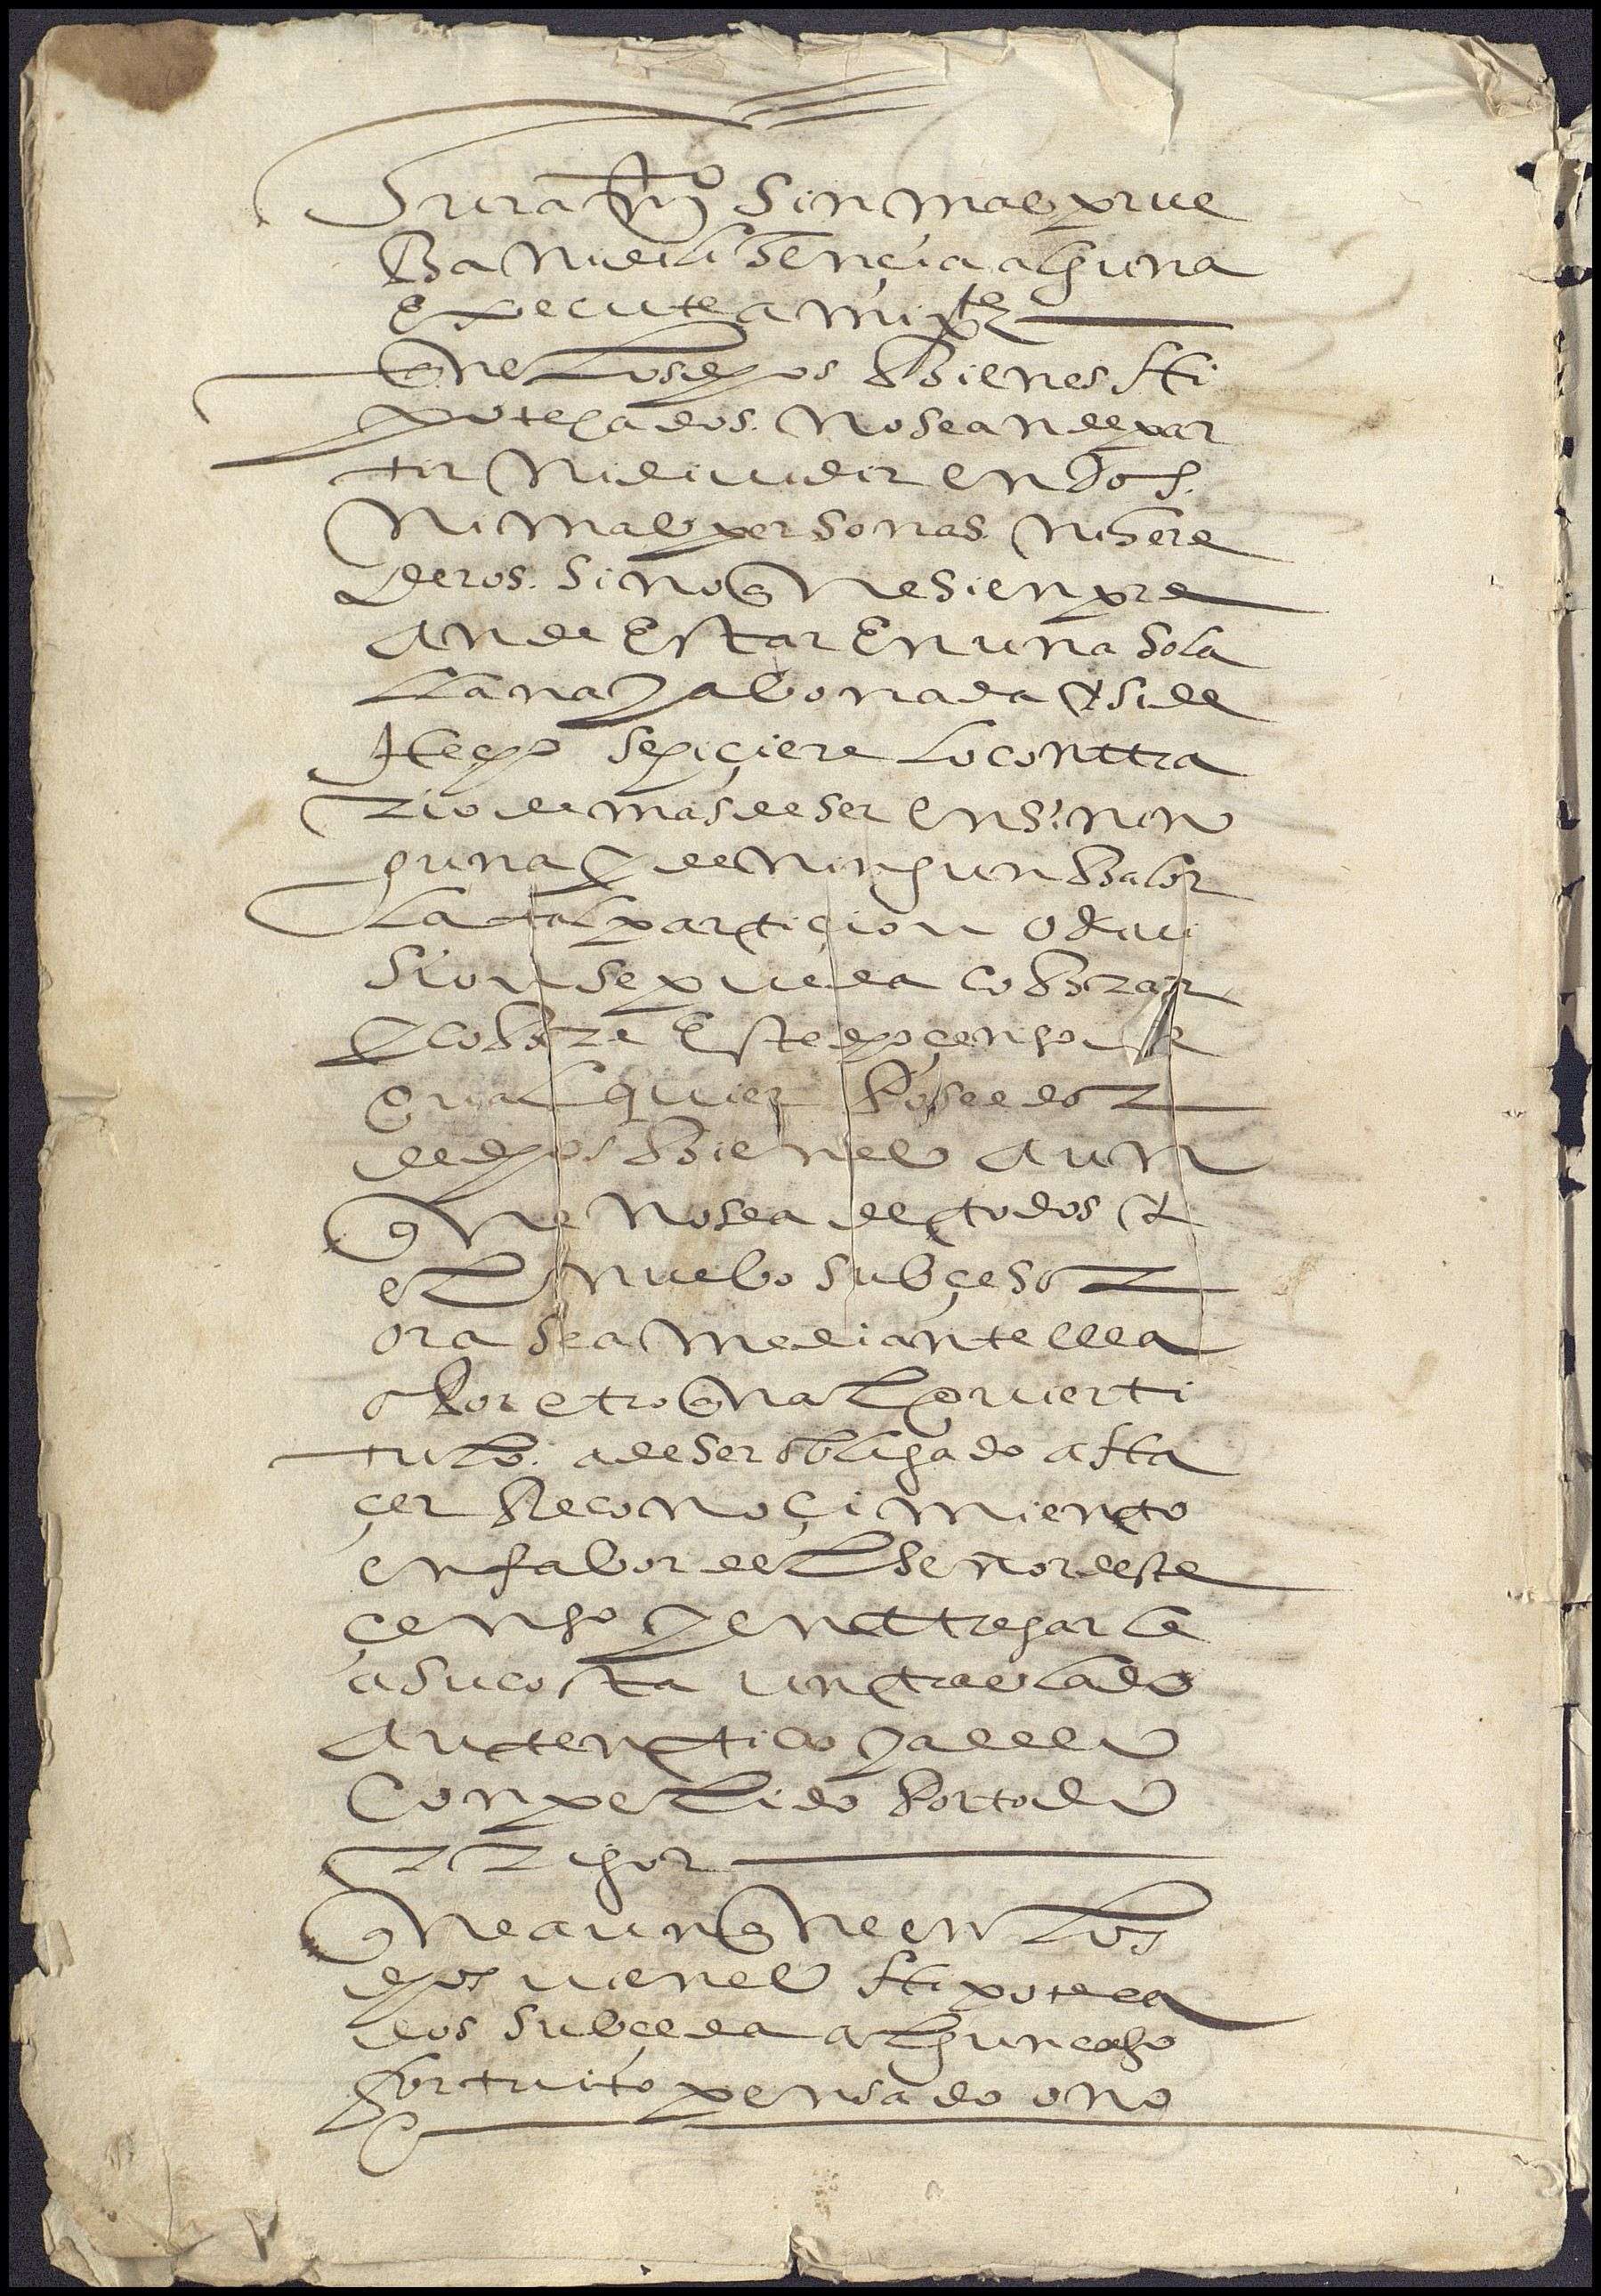 Juramto sin mas prue
ba ni dilisençia alguna
execute a mi pte
que los dhos bienes hi
potecados no sean de par
tir ni diuidir en dos
ni mas personas ni here
deros sino que sienpre
an de estar en una sola
llana y abonada & si de
hecho se hiçiere lo conttra
rio de mas de ser en si nin
guna y de ningun balor
la tal partiçion o diui
sion se pueda cobrar
y cobre este dho çenso de
qualquier poseedor
de dhos bienes aun
que no sea de todos &
el nuebo subçesor
ora sea mediante ella
o por otro qualquier ti
tulo a de ser obligado a ha
çer reconoçimiento
en fabor del señor deste
çenso y enttregarle
a su costa un traslado
autentico y a ello
conpelido por todo
rrigor
que aunque en los
dhos uienes hipoteca
dos subçeda algun caso
fortuito pensado o no